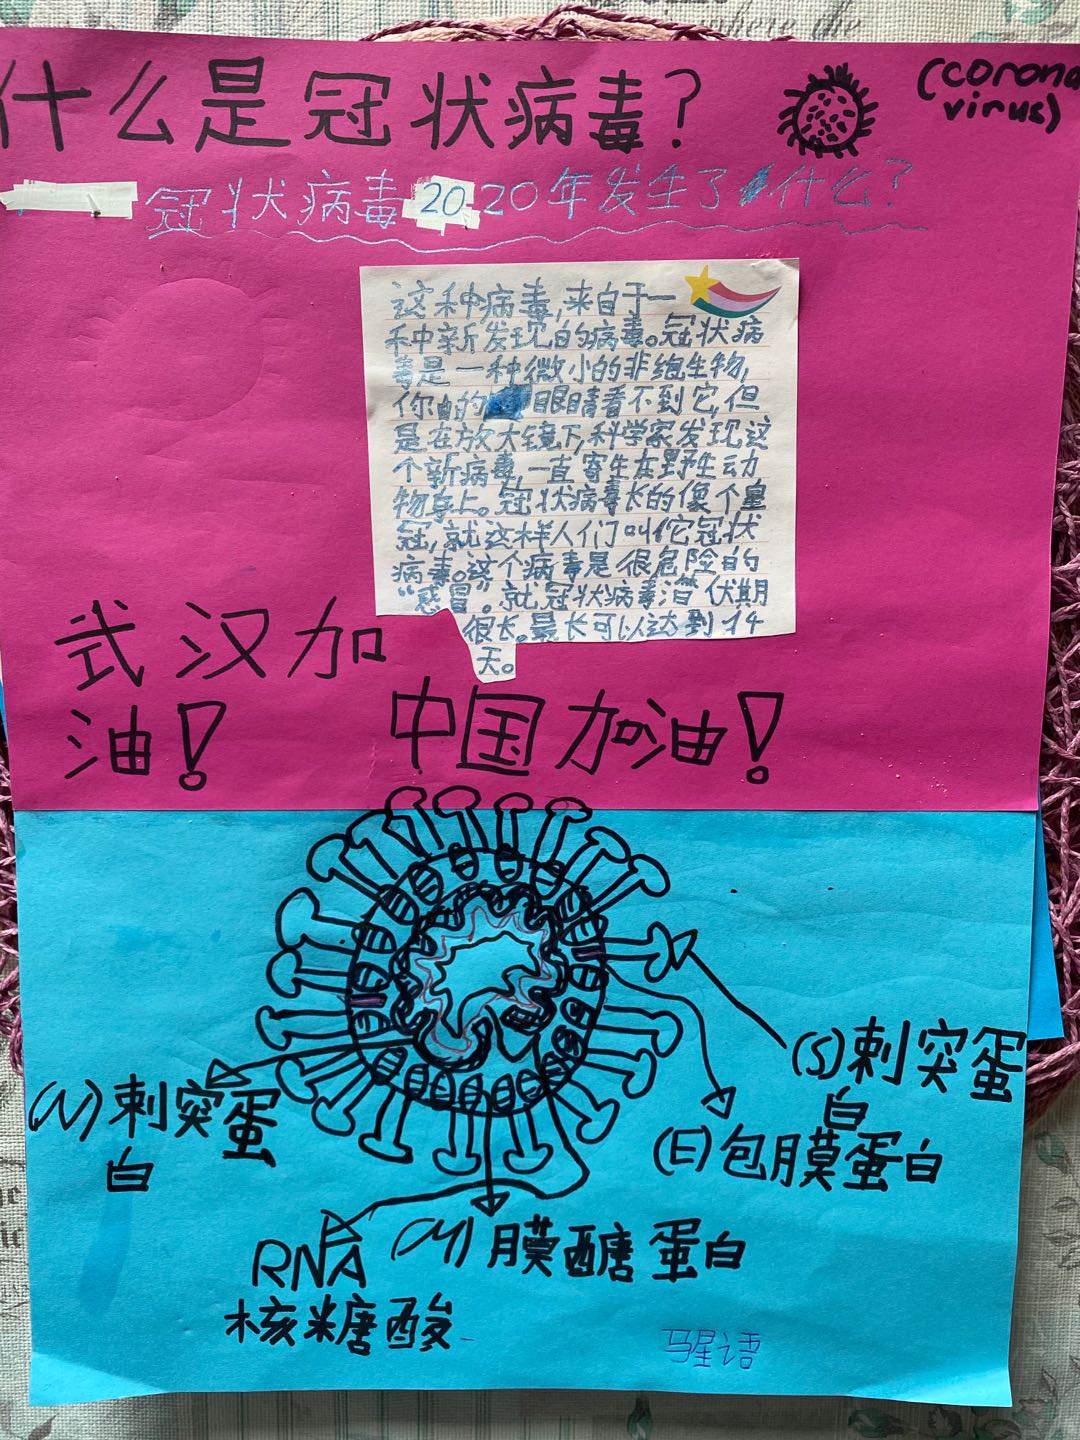 什么是冠状病毒?
(corona
virus)
冠状病毒2020年发生了什么?
这种病毒,来自于一
种新发现的病毒。冠状病
毒是一种微小的非细胞生物,
你的眼睛看不到它,但
是在放大镜下,科学家发现这
个新病毒,一直寄生在野生动
物身上。冠状病毒长的像个皇
冠,就这样人们叫它冠状
病毒。这个病毒是很危险的
“感冒”。就冠状病毒潜伏期
很长。最长可以达到14
天。
武汉加
油!
中国加油!
(S)刺突蛋
白
(N)刺突蛋
白
(E)包膜蛋白
(M)膜醣蛋白
RNA
核糖酸
马星语